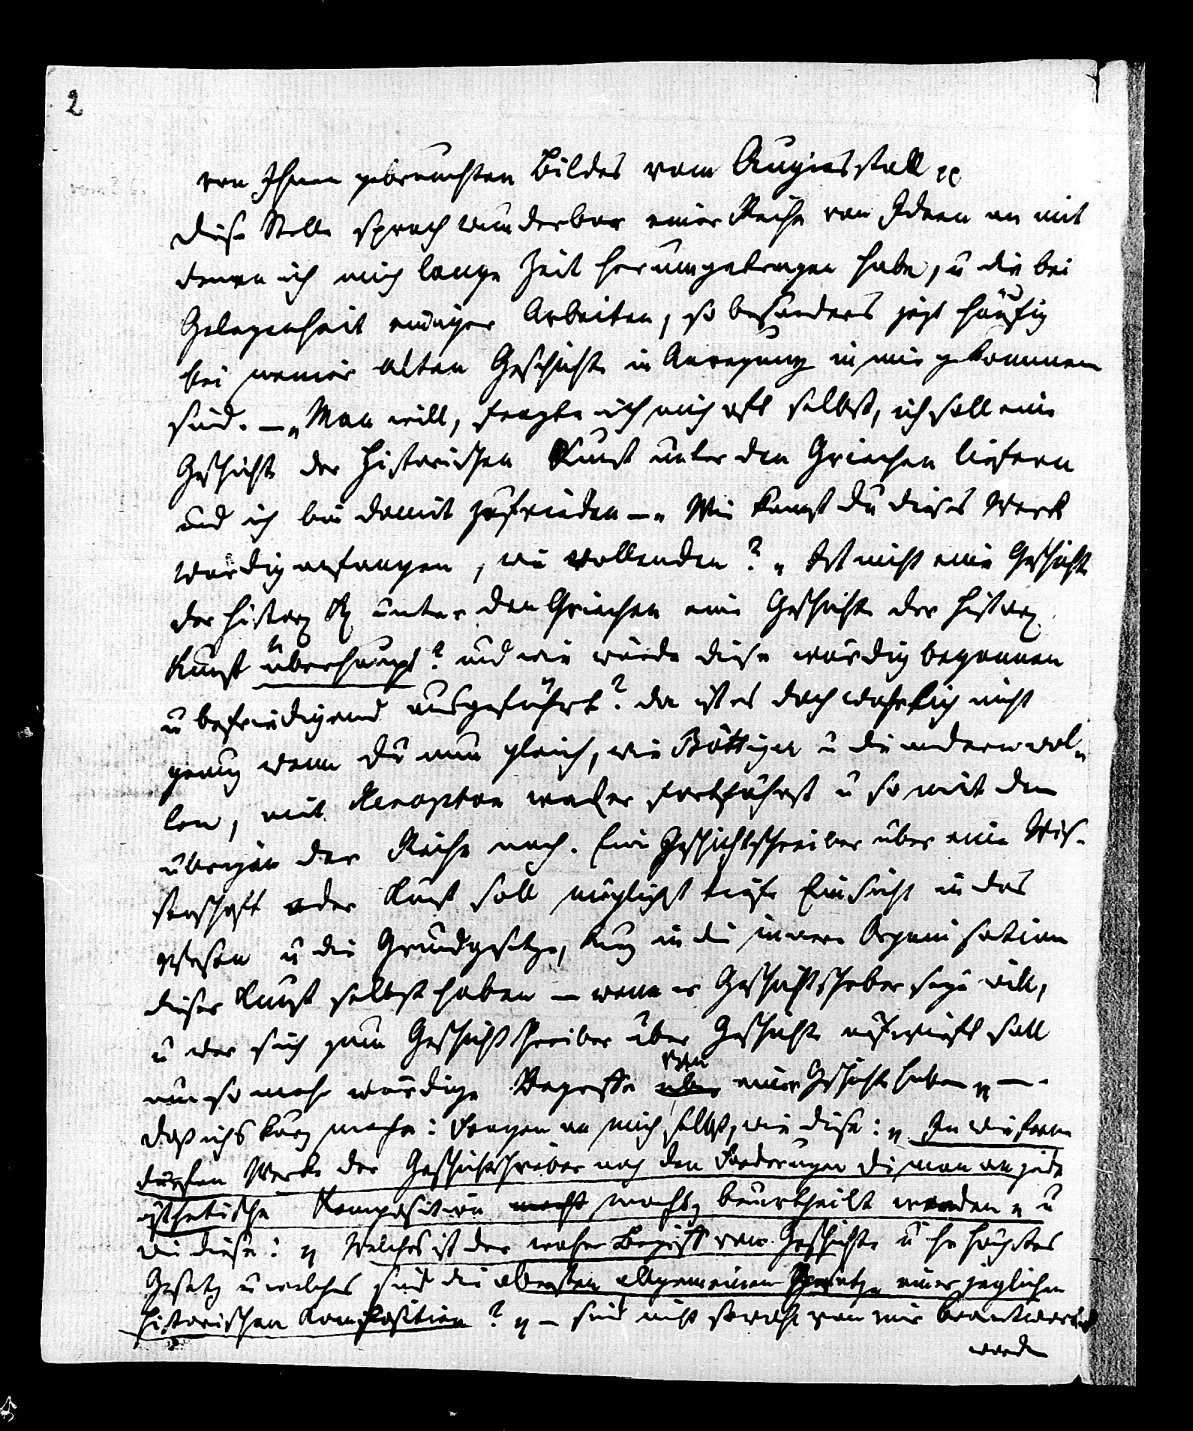 2
von Ihnen gebrauchten Bildes vom Augiasstall ꝛc
Diese Stelle sprach wunderbar einer Reihe von Ideen an mit
denen ich mich lange Zeit herumgetragen habe, u die bei
Gelegenheit einiger Arbeiten, so besonders jezt häufig
bei meiner alten Geschichte in Anregung in mir gekommen
sind. – „Man will, fragte ich mich oft selbst, ich soll eine
Geschichte der Historischen Kunst unter den Griechen liefern
und ich bin damit zufrieden – „ Wie kanst du dieses Werk
würdig anfangen, wie vollenden? „ Ist nicht eine Geschichte
der histor. K. unter den Griechen eine Geschichte der histor.
Kunst überhaupt? und wie würde diese würdig begonnen
u befriedigend ausgeführt? da ist es doch wahrlich nicht
genug wenn du nun gleich, wie Böttiger u die andern wol-
len, mit Xenophon weiter fortfährst u so mit den
übrigen der Reihe nach. Ein Geschichtschreiber über eine Wis-
senschaft oder Kunst soll möglichst tiefe Einsicht in das
Wesen u die Grundgesetze, kurz in die innere Organisation
dieser Kunst selbst haben – wenn er Geschichtschreiber seyn will,
u wer sich zum Geschichtschreiber über Geschichte aufwirft soll
um so mehr würdige Begriffe von einer Geschichte haben „ –.
Daß ichs kurz mache: Fragen an mich selbst, wie diese: „ In wie fern
dürfen Werke der Geschichtschreiber nach den Foderungen die man an jede
ästhetische Komposition macht, beurtheilt werden „ u
wie diese: „ Welches ist der wahre Begriff von Geschichte u ihr höchstes
Gesetz u welches sind die obersten allgemeinen Gesetze einer jeglichen
historischen Komposition? „ – sind nicht sowohl von mir beantwortet
worden